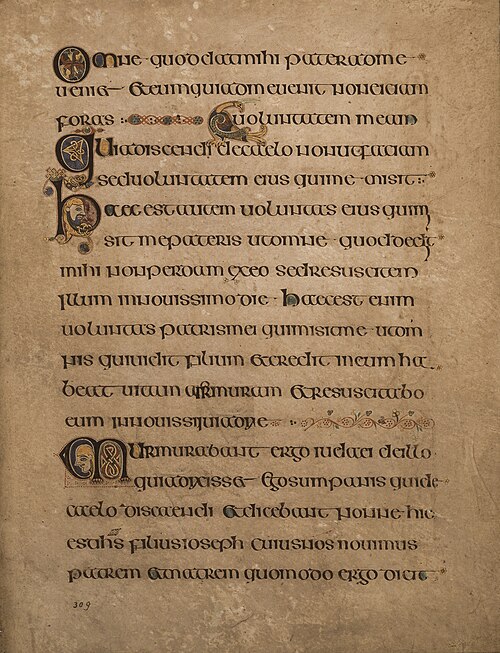 Omne quod dat mihi pater ad me
ueniet Et eum qui ad me uenit non eiciam
foras uoluntatem meam
Quia discendi de caelo non ut faciam
sed uoluntatem eius qui me misit
haec est autem uoluntas eius qui mi
sit me pateris ut omne quod dedit
mihi non perdam ex eo sed resuscitem
illum in nouissimo die haec est enim
uoluntas patris mei qui misit me ut om
nis qui uidit filium et credit in eum ha
beat uitam et resuscitabo
eum in
Murmurabant ergo iudaei de illo
quia dixisset Ego sum panis qui de
caelo discendi et dicebant nonne hic
est ihs filius ioseph cuius nos nouimus
patrem et matrem quomodo ergo dicit
309